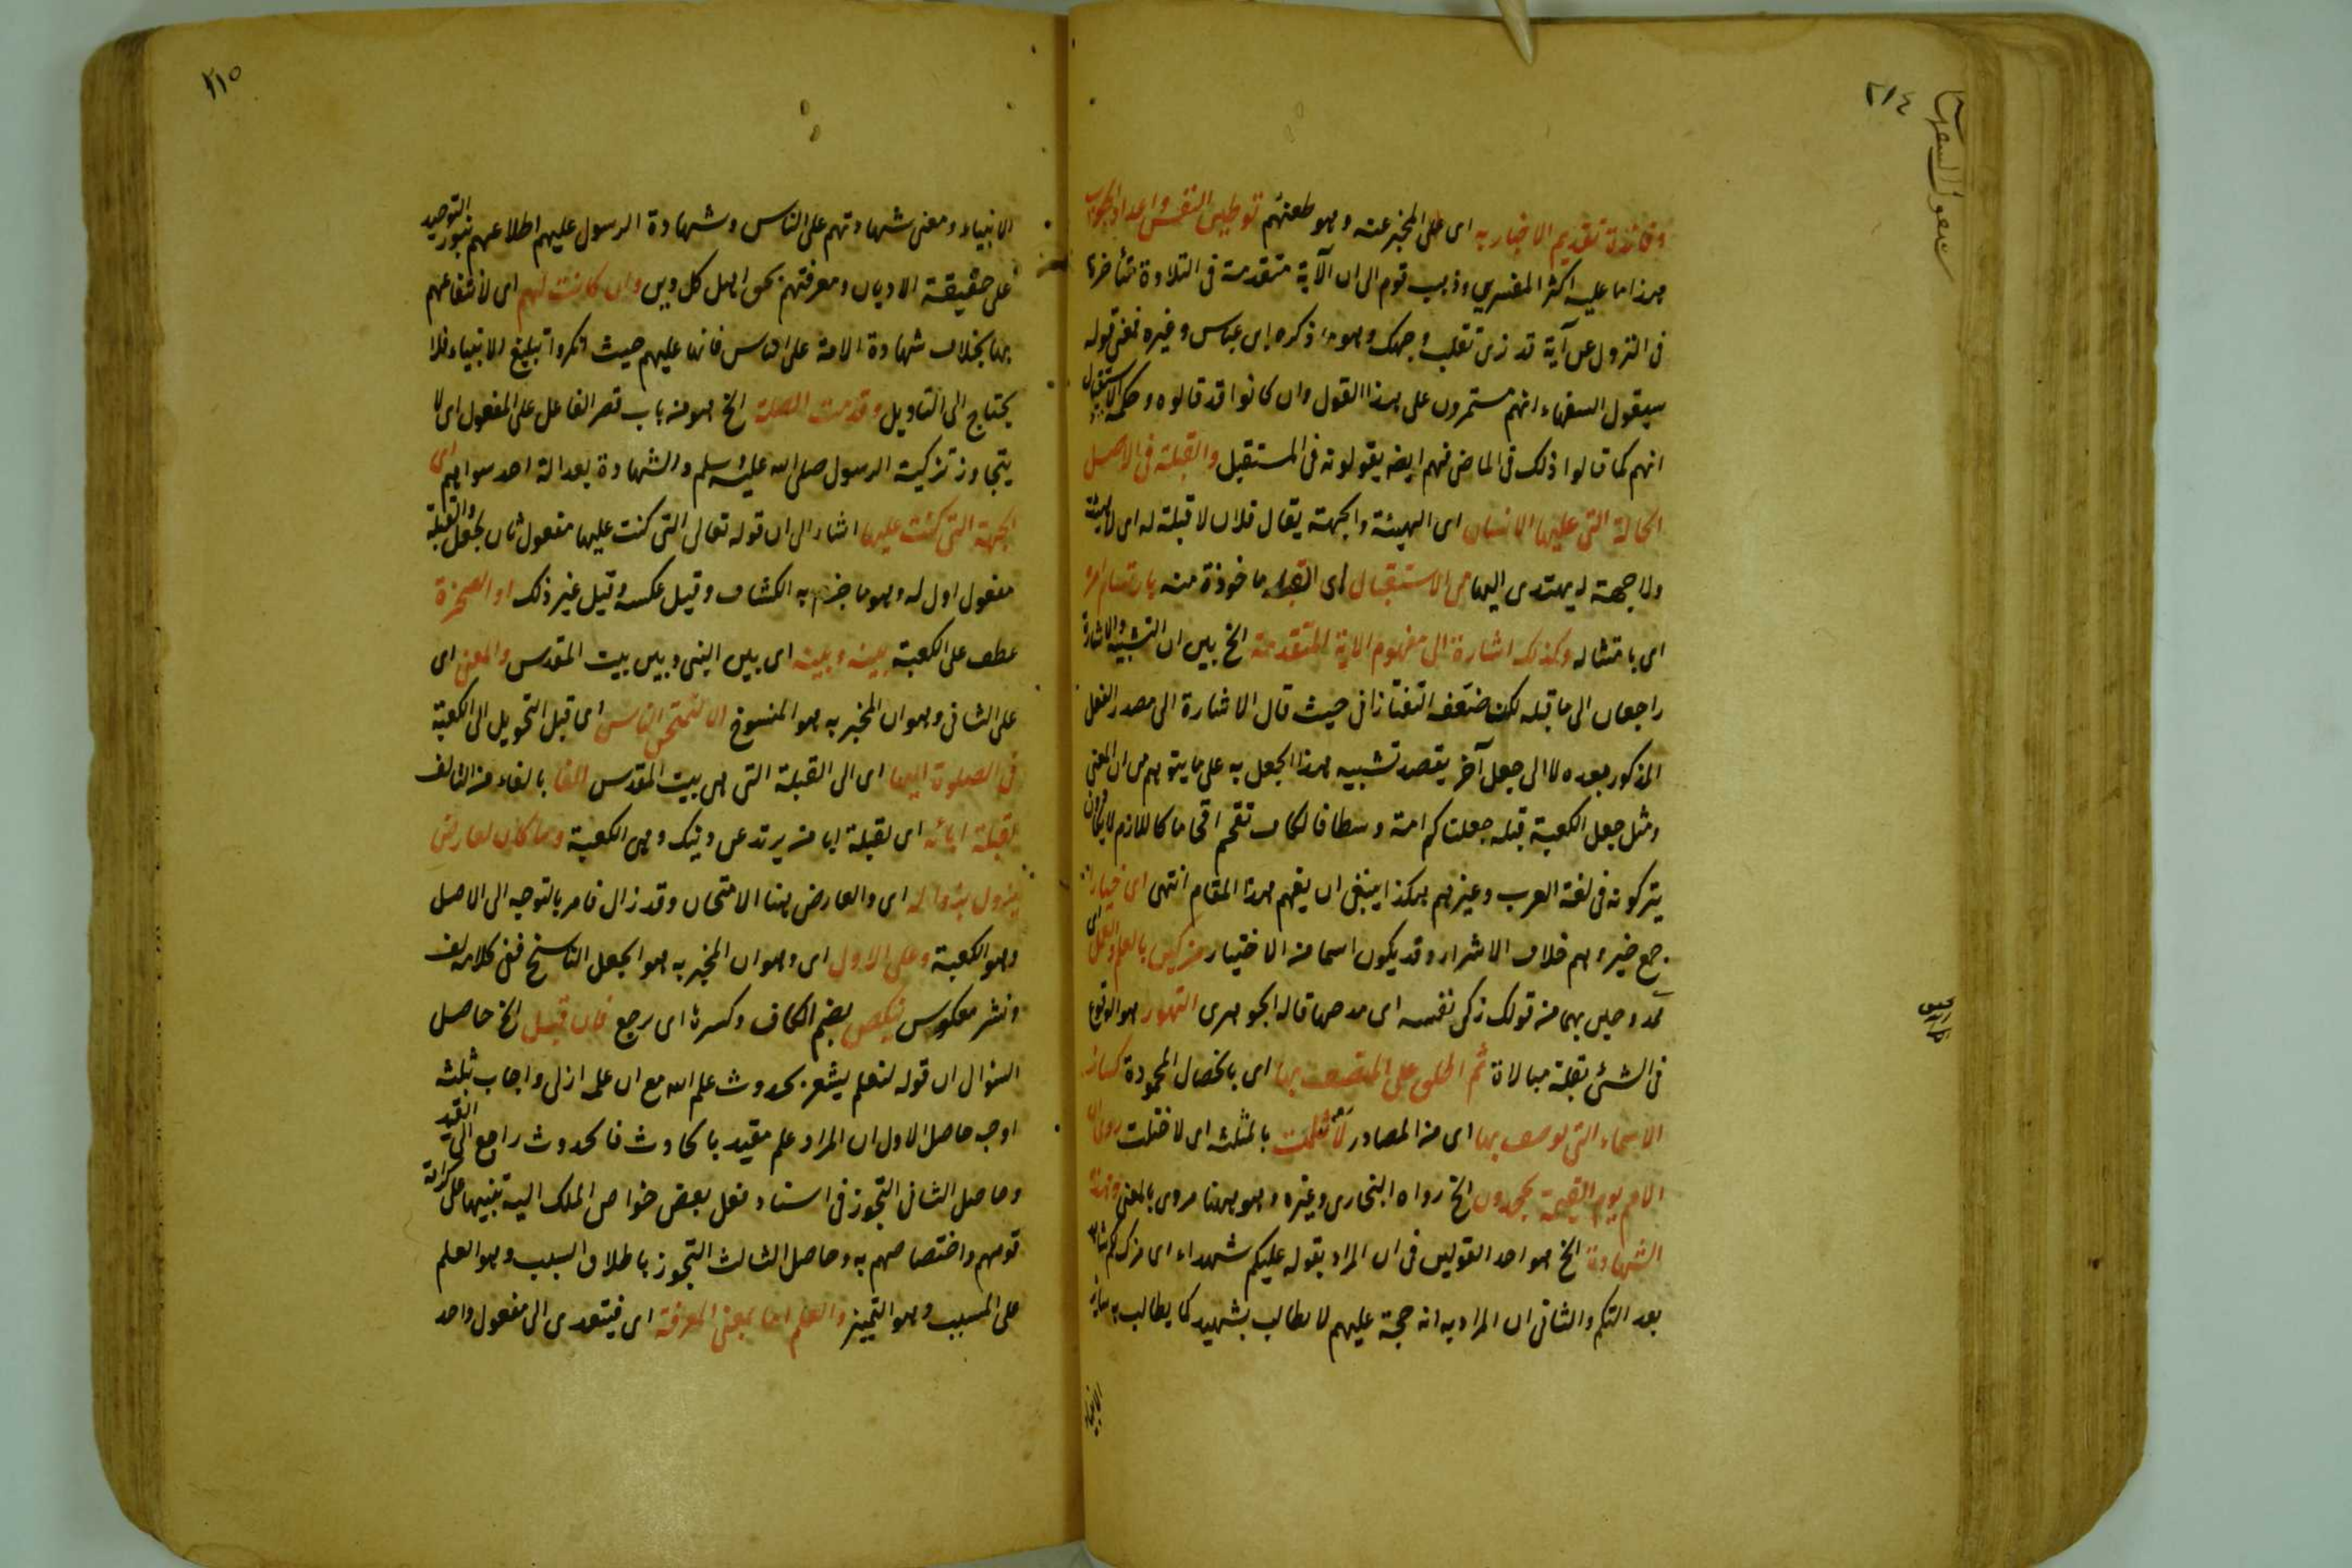 ٢١٤
وفائدة تقديم الاخبار به اى على المخبر عنه وهو طعنهم توطين النفس واعداد الجواب
هذا ما عليه اكثر المفسرين وذهب قوم الى ان الآية متقدمة فى التلاوة متأخرة
فى النزول عن آية قد نرى تقلب وجهك وهو ما ذكره ابن عباس وغيره فمعنى قوله
سيقول السفهاء انهم مستمرون على هذا القول وان كانوا قد قالوه وحكمة الاستقبال
انهم كما قالوا ذلك فى الماضى فهم ايضا يقولونه فى المستقبل والقبلة فى الاصل
الحالة التى عليها الانسان اى الهيئة والجهة يقال فلان لا قبلة له اى لا هيئة
ولا جهة له يهتدى اليها من الاستقبال اى القبلة ماخوذة منه بارتسام امره
اى بامتثاله وكذلك اشارة الى مفهوم الاية المتقدمة الخ بين ان التشبيه والاشارة
راجعان الى ما قبله لكن ضعف التفتازانى حيث قال الاشارة الى مصدر الفعل
المذكور بعده لا الى جعل آخر يقصد تشبيه هذا الجعل به على ما يتوهم من ان المعنى
ومثل جعل الكعبة قبلة جعلناكم امة وسطا فالكاف تقحم اقحاما كاللازم لا يكادون
يتركونه فى لغة العرب وغيرهم هكذا ينبغى ان يفهم هذا المقام انتهى اى خيارا
جمع خير وهم خلاف الاشرار وقد يكون اسما من الاختيار مزكين بالعلم والعمل اى
ممدوحين بهما من قولك زكى نفسه اى مدحها قاله الجوهرى التهور هو الوقوع
فى الشئ بقلة مبالاة ثم اطلق على المتصف بها اى بالخصال المحمودة كسائر
الاسماء التى يوصف بها اى من المصادر لانثلمت بالمثلثة اى لاختلت روى ان
الامم يوم القيمة يجحدون الخ رواه البخارى وغيره وهو هنا مروى بالمعنى وهذه
الشهادة الخ هو احد القولين فى ان المراد بقوله عليكم شهداء اى مزك لكم شاهد
بعدالتكم والثانى ان المراد به انه حجة عليهم لا يطالب بشهيد كما يطالب به سائر
الانبياء
٢١٥
الانبياء ومعنى شهادتهم على الناس وشهادة الرسول عليهم اطلاعهم بنور التوحيد
على حقيقة الاديان ومعرفتهم بحق اهل كل دين وان كانت لهم اى لانتفاعهم
بها بخلاف شهادة الامة على الناس فانها عليهم حيث انكروا تبليغ الانبياء فلا
يحتاج الى التاويل وقدمت الصلة الخ هو من باب قصر الفاعل على المفعول اى لا
يتجاوز تزكية الرسول صلى الله عليه وسلم والشهادة بعدالة احد سواهم اى
الجهة التى كنت عليها اشار الى ان قوله تعالى التى كنت عليها مفعول ثان لجعل والقبلة
مفعول اول له وهو ما جزم به الكشاف وقيل عكسه وقيل غير ذلك او الصخرة
عطف على الكعبة بينه وبينه اى بين النبى وبين بيت المقدس والمعنى اى
على الثانى وهو ان المخبر به هو المنسوخ الا لنمتحن الناس اى قبل التحويل الى الكعبة
فى الصلوة اليها اى الى القبلة التى هى بيت المقدس الفا بالفاء من التالف
لقبلة ابائه اى لقبلة ابا من يرتد عن دينك وهى الكعبة وما كان لعارض
يزول بزواله اى والعارض هنا الامتحان وقد زال فامر بالتوجه الى الاصل
وهو الكعبة وعلى الاول اى وهو ان المخبر به هو الجعل الناسخ ففى كلامه لف
ونشر معكوس ينكص بضم الكاف وكسرها اى رجع فان قيل الخ حاصل
السؤال ان قوله لنعلم يشعر بحدوث علم الله مع ان علمه ازلى واجاب بثلثة
اوجه حاصل الاول ان المراد علم مقيد بالحادث فالحدوث راجع الى القيد
وحاصل الثانى التجوز فى اسناد فعل بعض خواص الملك اليه تنبيها على كرامة
قومهم واختصاصهم به وحاصل الثالث التجوز باطلاق السبب وهو العلم
على المسبب وهو التمييز والعلم اما بمعنى المعرفة اى فيتعدى الى مفعول واحد